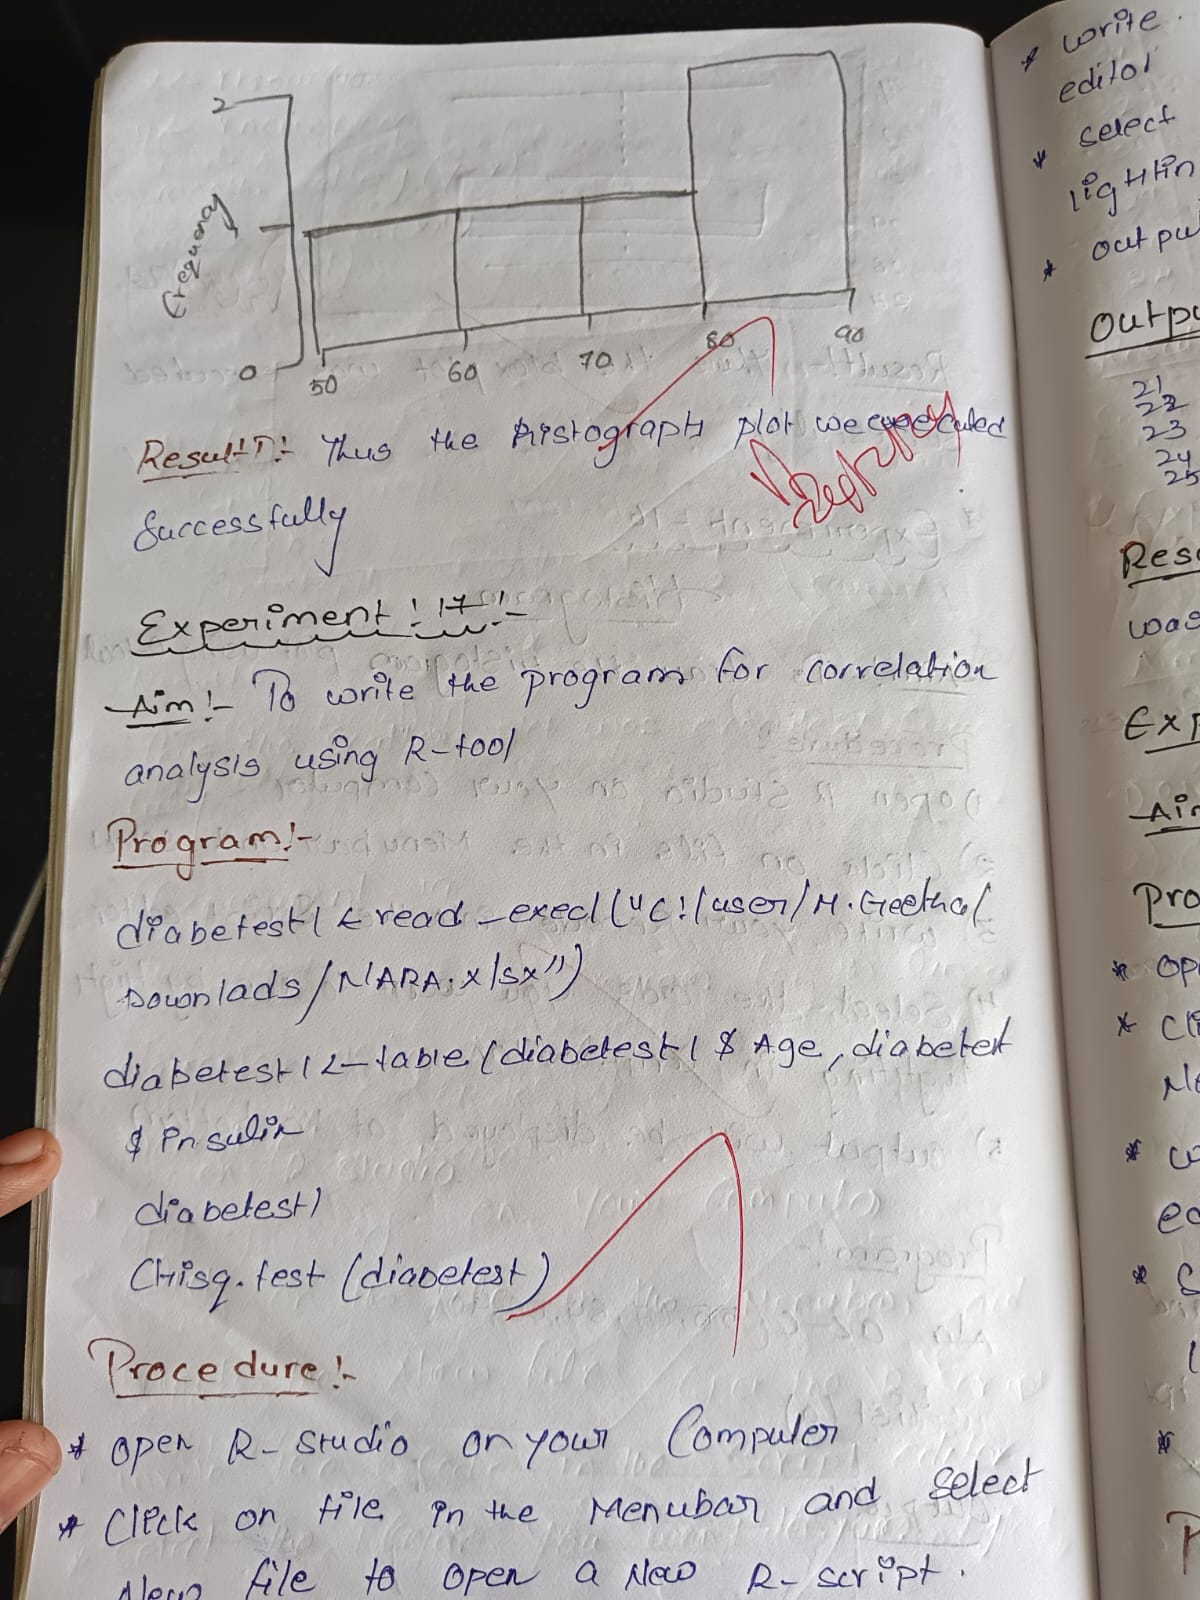 2
Frequency
0
50
60
70
80
90
Result:- Thus the histograph plot we executed
Successfully
Experiment : 17 :-
Aim:- To write the program for correlation
analysis using R-tool
Program:-
diabetest1 <- read_execl("C:/user/M.Geetha/
Downlads/NARA.xlsx")
diabetest1 <- table(diabetest1 $ Age, diabetest
$ insulin
diabetest1
Chisq.test (diabetest)
Procedure:-
* open R-Studio on your Computer
* Click on file in the Menubar and select
New file to open a New R-script.
* write
editor
* select
lightin
* outpu
Outpu
21
22
23
24
25
Resu
was
Exp
Aim
Pro
* Ope
* Cli
Ne